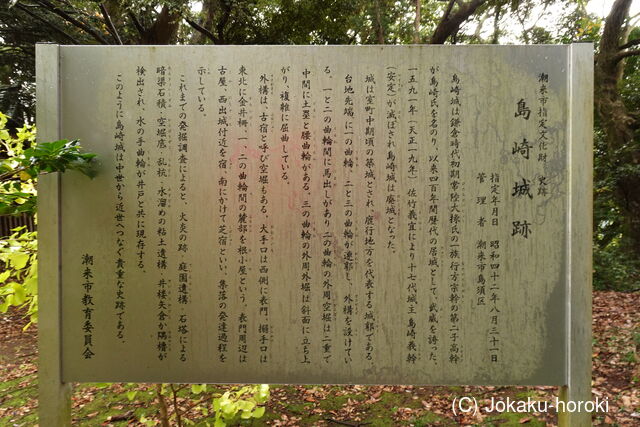 潮来市指定文化財 史跡
島崎城跡
指定年月日 昭和四十二年八月三十一日
管理者 潮来市島須区
島崎城は鎌倉時代初期常陸大掾氏の一族行方宗幹の第二子高幹
が島崎氏を名のり、以来四百年間歴代の居城として、武威を誇った。
一五九一年(天正一九年)佐竹義宣により十七代城主島崎義幹
(安定)が滅ぼされ島崎城は廃城となった。
城は室町中期頃の築城とされ、鹿行地方を代表する城郭である。
台地先端に一の曲輪、二と三の曲輪が連郭し、外構を設けてい
る。一と二の曲輪間に馬出しがあり二の曲輪の外周空堀は二重で
中間に土塁と腰曲輪がある。三の曲輪の外周外堀は斜面に立ち上
がり、複雑に屈曲している。
外構は、古宿と呼び空堀もある。大手口は西側に表門、搦手口は
東北に金井柵、一、二の曲輪間の麓部を根小屋という。表門周辺は
古屋、西出城付近を宿、南にかけて芝宿といい、集落の発達過程を
示している。
これまでの発掘調査によると、火災の跡、庭園遺構、石塔による
暗渠石積、空堀底、乱杭、水溜めの粘土遺構、井楼矢倉か隅櫓が
検出され、水の手曲輪が井戸と共に現存する。
このように島崎城は中世から近世へつなぐ貴重な史跡である。
潮来市教育委員会
(C) Jokaku-horoki